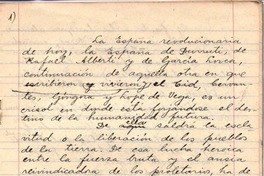 1)
La España revolucionaria
de hoy, la España de Durruti, de
Rafael Alberti y de García Lorca,
continuación de aquella otra en que
escribieron y vivieron el Cid, Cervan-
tes, Góngora y Lope de Vega, es un
crisol en donde está forjándose el des-
tino de la humanidad futura.
De ello saldrá la escla-
vitud o la liberación de los pueblos
de la tierra. De esa lucha heroica
entre la fuerza bruta y el ansia
reivindicadora de los proletarios, ha de